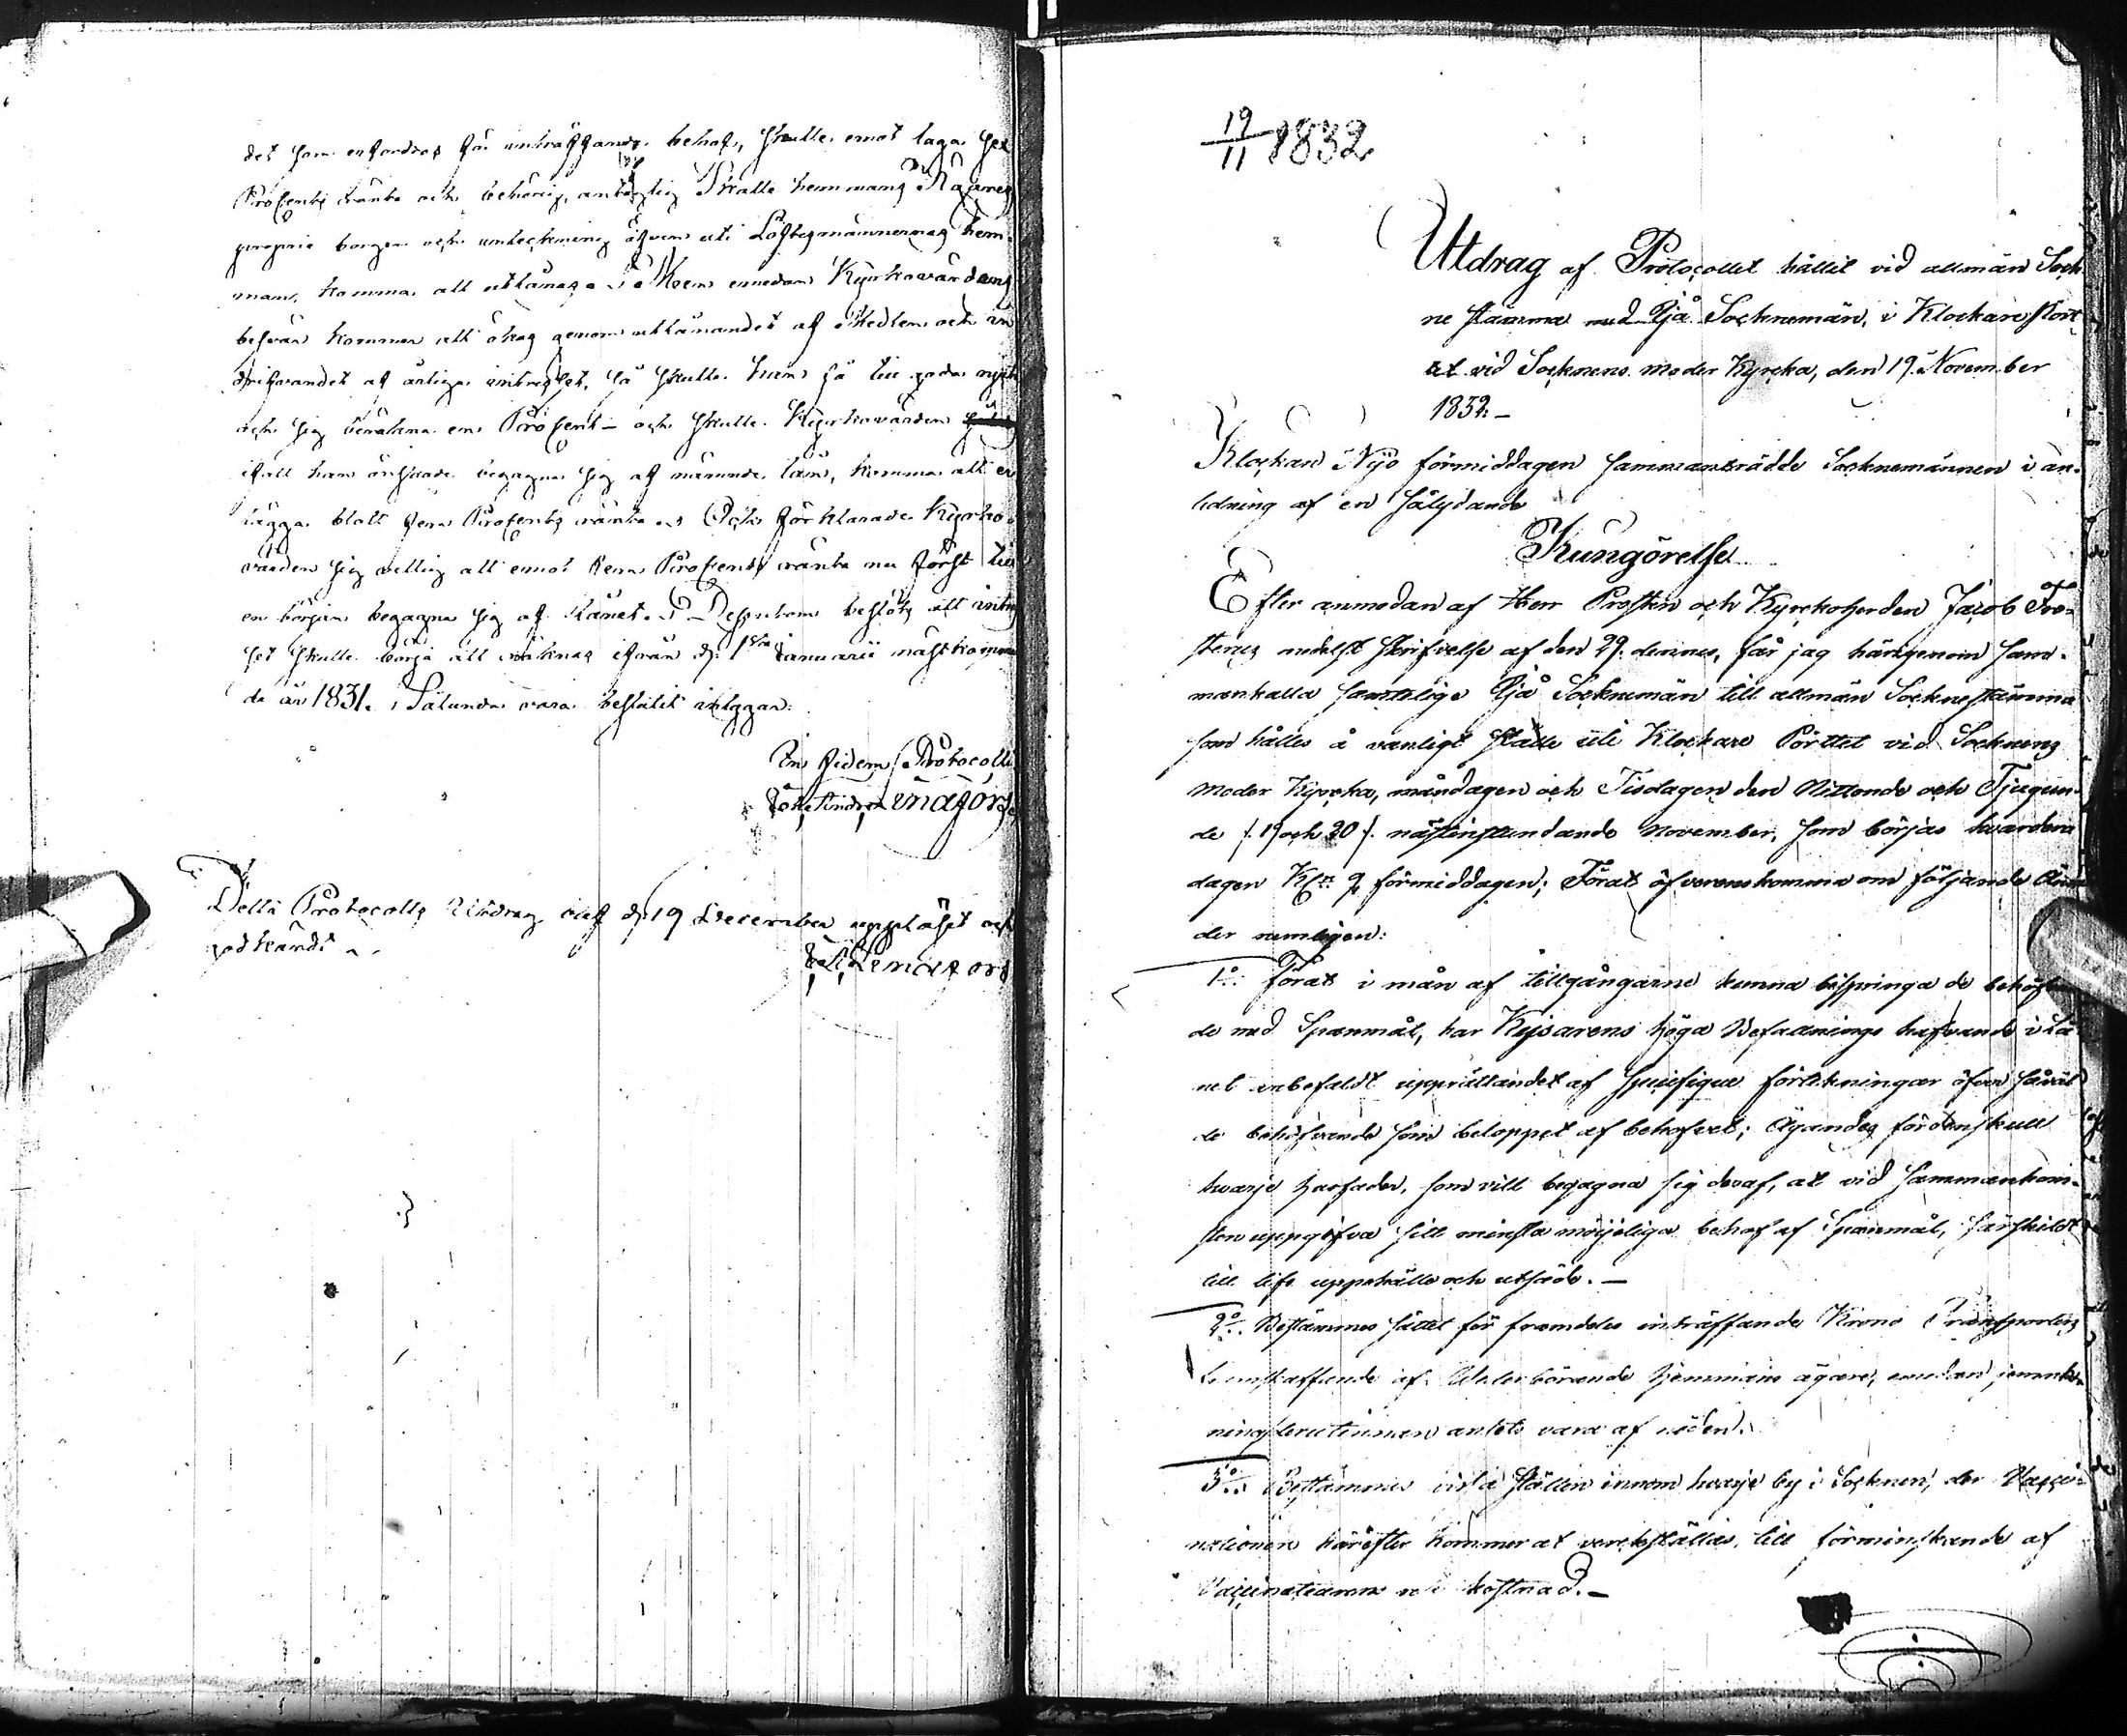 det som erfordras för inträffande behof, skulle emot laga sex
Procents ränta och behörig, antaglig Skatte hemmans Ägares
proprie borgen och inteckning äfven uti Löftesmännernas hem-
man, komma att utlånas. Men emedan Kyrkovärdens
besvär kommer att ökas genom utlånandet af Medlen och in
drifvandet af årliga intresset, så skulle han få till godo njuta
och sig beräkna en Procent – och skulle Kyrkovärden
ifall han önskade begagna sig af nämnde lån, komma att er
lägga blott fem Procents ränta. Och förklarade Kyrko-
värden sig villig att emot fem Procents ränta nu först till
en början begagna sig af lånet. Dessutom beslöts att intres
set skulle börja att räknas ifrån d. 1sta Januarii nästkomman
de år 1831. Sålunda vara beslutit intygar:
In fidem Protocolli
Johan Enafors.
Detta Protocolls Utdrag blef d. 19 December uppläst och
godkändt.
Enafors
19/11 1832
Utdrag af Protocollet hållit vid allmän Sock
ne stämma med Pjå Socknemän, i Klockare Pört
et vid Socknens moder Kyrcka, den 19 November
1832. –
Klockan Nijo förmiddagen sammanträdde Socknemännen i an-
ledning af en sålydande
Kungörelse
Efter anmodan af Herr Prosten och Kyrckoherden Jacob Fro-
sterus medelst skrifvelse af den 29. dennes, får jag härigenom sam-
mankalla samtelige Pjå Socknemän till allmän Socknestämma
som hålles å vanligt ställe uti Klockare Pörttet vid Socknens
moder Kyrcka, måndagen och Tisdagen den Nittonde och Tjugun-
de /. 19 och 20 /. nästinstundande November, som börjas hvardera
dagen Kl. 9 förmiddagen; Förat öfverenskomma om följande Äm
der nemligen:
1o. Förat i mån af tillgångarne kunna bispringa de behöfvan
de med Spanmål, har Kejsarens höga Befallnings hafvande i Lä
net anbefaldt upprättandet af specifique förtekningar öfver såväl
de behöfvande som beloppet af behofvet; Ägandes fördenskull
hvarje husfader, som vill begagna sig deraf, at vid sammankom-
sten uppgifva sitt minsta möjeliga behof af Spanmål, särskildt
till lifs uppehälle och utsäde. –
2o. Bestämmes sättet för framdeles inträffande Krono Transporters
framskaffande af Vederbörande hemmans ägare, emedan jemnk-
ning
3o. Bestämmes vissa ställen innom hvarje by i Socknen, der Vacci-
nationen härefter kommer at verckställas, till förminskande af
Vaccinationens kostnad. –